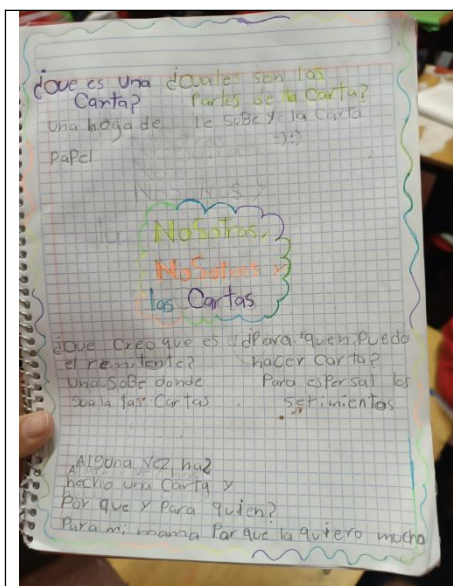 ¿Que es una
Carta?
una hoja de
papel
¿cuales son las
Partes de la Carta?
le sobe y la Carta
:):)
Nosotras,
Nosotros y
las Cartas
¿Que Creo que es
el remitente?
una sobe donde
las Cartas
¿Para quien Puedo
hacer Carta?
Para espersal los
serimientos
Alguna vez haz
hecho una Carta y
Por que y Para quien?
Para mi mama Parque la quiero mucho